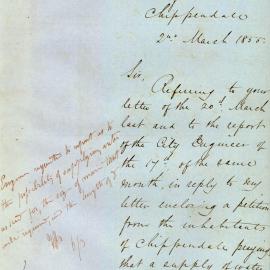 Chippendale
2nd March 1855.
Sir,
Referring to your
letter of the 20th March
last and to the report
of the City Engineer of
the 17th of the same
month, in reply to my
letter enclosing a petition
from the inhabitants
of Chippendale praying
that a supply of water
requested to report as to
the of supplying water
as and for the